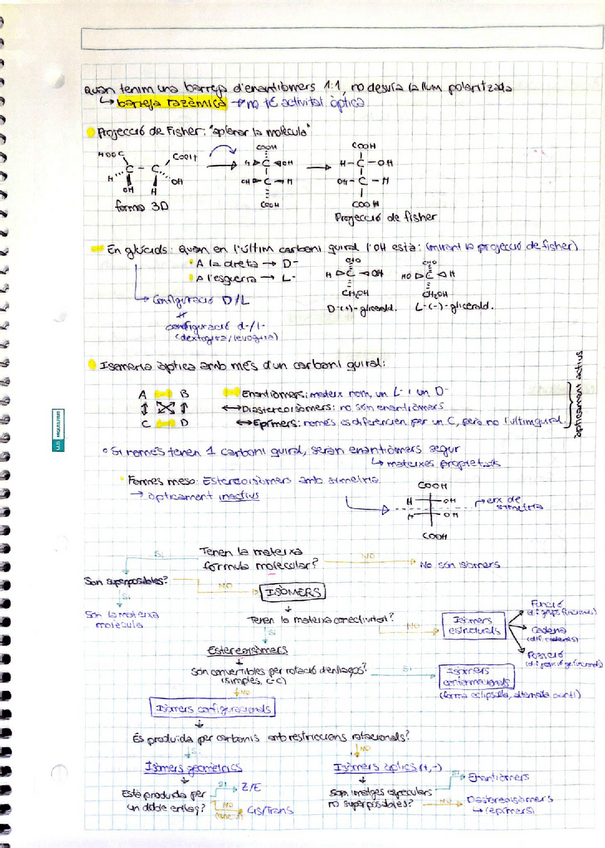 Quan tenim una barreja d'enantiòmers 1:1, no desvia la llum polaritzada
↳ barreja razèmica → no té activitat òptica
Projecció de Fisher: "aplanar la molècula"
HOOC COOH COOH COOH
C - C H C OH H-C-OH
H OH H OH OH C H OH-C-H
COOH COOH
forma 3D
Projecció de fisher
En glúcids: Quan en l'últim carboni quiral l'OH està: (mirant la projecció de fisher)
A la dreta → D-
A l'esquerra → L-
CHO CHO
H C OH HO C H
CH₂OH CH₂OH
D-(+)-glicerald. L-(-)-glicerald.
↳ Configuració D/L
≠
configuració d-/l-
(dextrogira/levogira)
Isomeria òptica amb més d'un carboni quiral:
A B
C D
Enantiòmers: mateix nom, un L- i un D-
↔ Diastereoisòmers: no són enantiòmers
↔ Epímers: només es diferencien per un C, però no l'últim quiral.
òpticament actius
Si només tenen 1 carboni quiral, seran enantiòmers segur
↳ mateixes propietats
Formes meso: Estereoisòmers amb simetria
→ òpticament inactius
COOH
H OH
H OH
COOH
eix de simetria
Tenen la mateixa
fórmula molecular?
Si
NO
No són isòmers
Són superposables?
NO
ISÒMERS
Si
Són la mateixa
molècula
Tenen la mateixa connectivitat?
NO
Isòmers
estructurals
Funció
(dif. grups funcionals)
Cadena
(dif. cadenes)
Posició
Si
Estereoisòmers
Són convertibles per rotació d'enllaços?
(simples, C-C)
Si
Isòmers
conformacionals
NO
Isòmers configuracionals
És produïda per carbonis amb restriccions rotacionals?
Si
NO
Isòmers geomètrics
Isòmers òptics (+,-)
Està produïda per
un doble enllaç?
SI
Z/E
NO
Cis/Trans
Són imatges especulars
no superposables?
Si
Enantiòmers
NO
Diastereoisòmers
→ (epímers)